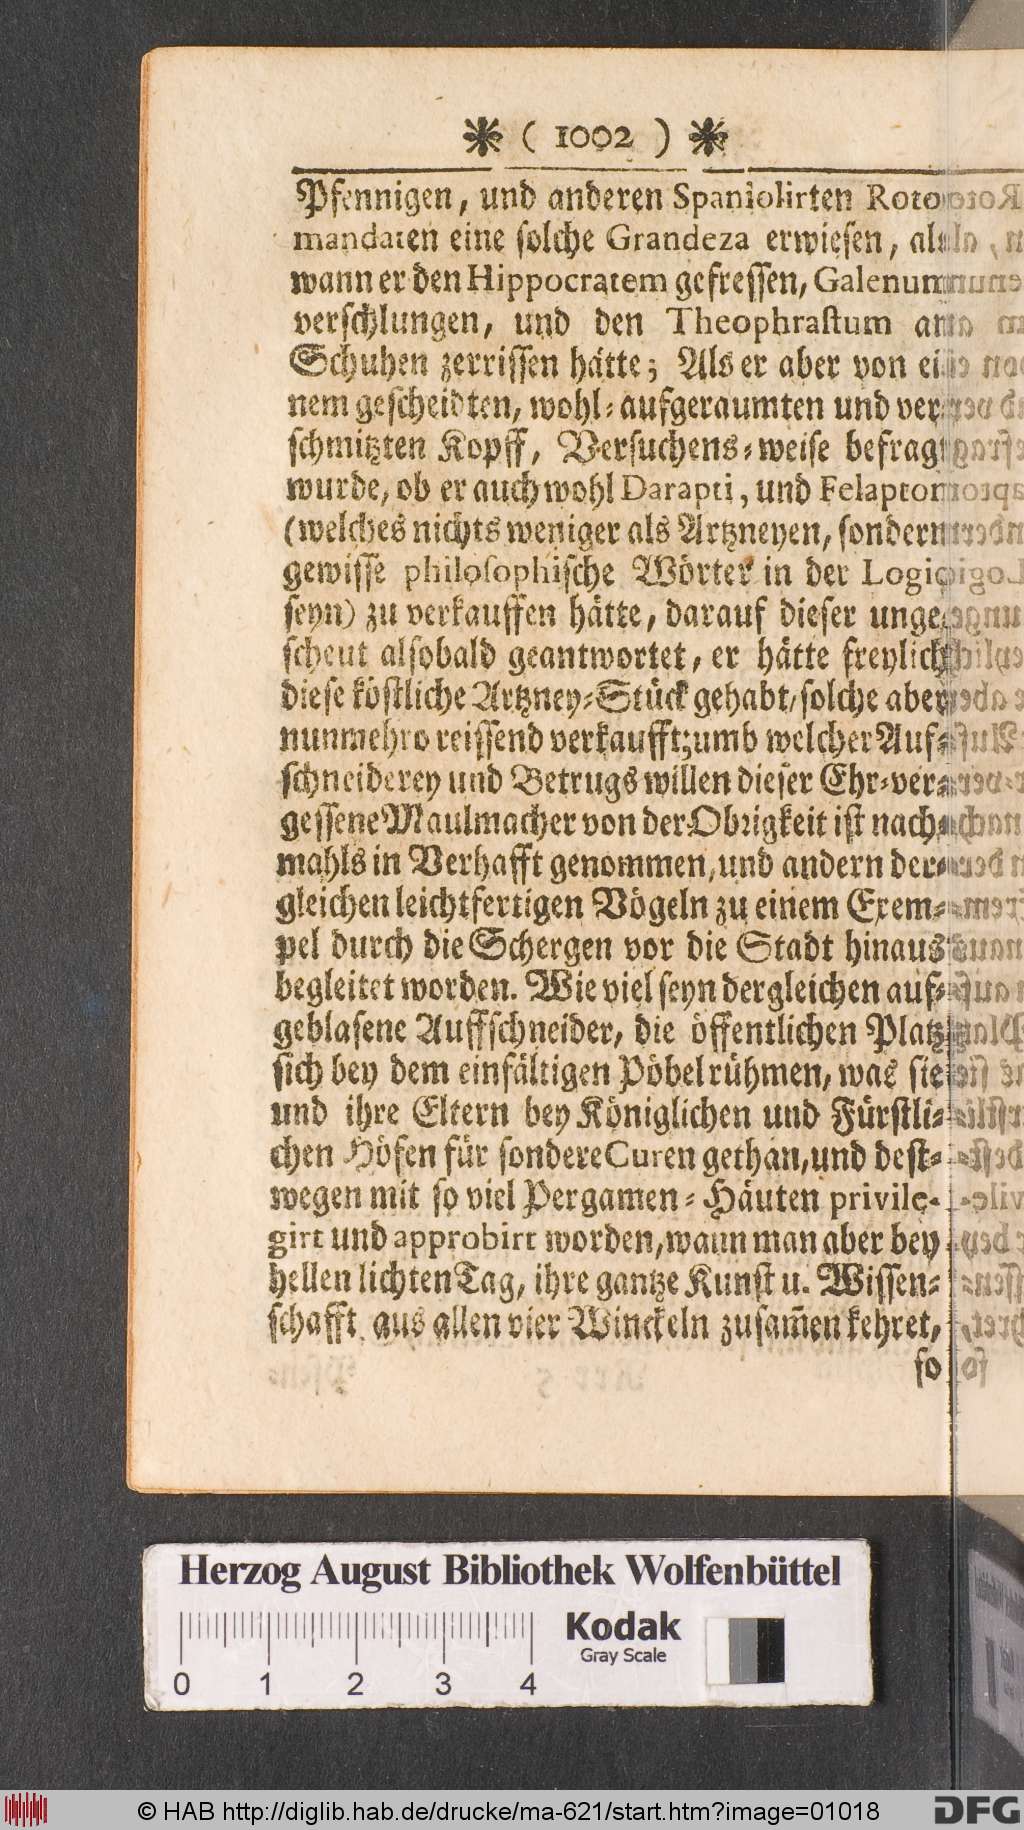 * ( 1002 ) *
Pfennigen, und anderen Spaniolirten Roto
mandaten eine solche Grandeza erwiesen, als
wann er den Hippocratem gefressen, Galenum
verschlungen, und den Theophrastum an
Schuhen zerrissen hätte; Als er aber von ei
nem gescheidten, wohl-aufgeraumten und ver
schmitzten Kopff, Versuchens-weise befragt
wurde, ob er auch wohl Darapti, und Felapton
(welches nichts weniger als Artzneyen, sondern
gewisse philosophische Wörter in der Logic
seyn) zu verkauffen hätte, darauf dieser unge
scheut alsobald geantwortet, er hätte freylich
diese köstliche Artzney-Stück gehabt, solche aber
nunmehro reissend verkaufft; umb welcher Auf-
schneiderey und Betrugs willen dieser Ehr-ver-
gessene Maulmacher von der Obrigkeit ist nach-
mahls in Verhafft genommen, und andern der-
gleichen leichtfertigen Vögeln zu einem Exem-
pel durch die Schergen vor die Stadt hinaus
begleitet worden. Wie viel seyn dergleichen auf-
geblasene Auffschneider, die öffentlichen Platz
sich bey dem einfältigen Pöbel rühmen, was sie
und ihre Eltern bey Königlichen und Fürstli-
chen Höfen für sondere Curen gethan, und dest-
wegen mit so viel Pergamen-Häuten privile-
girt und approbirt worden, wann man aber bey
hellen lichten Tag, ihre gantze Kunst u. Wissen-
schafft aus allen vier Winckeln zusam̃en kehret,
so
Herzog August Bibliothek Wolfenbüttel
0 1 2 3 4
Kodak
Gray Scale
© HAB http://diglib.hab.de/drucke/ma-621/start.htm?image=01018
DFG